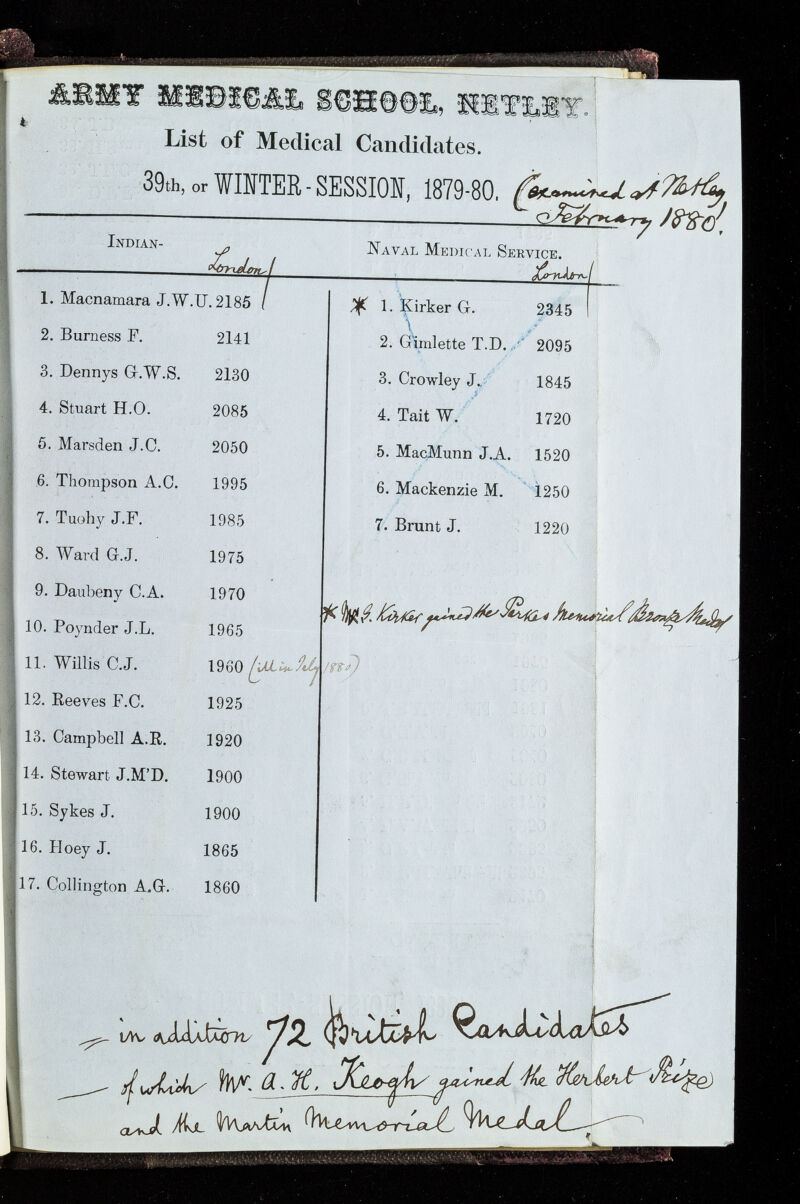 ARMY MEDICAL SCHOOL, NETLEY.
List of Medical Candidates.
39th, or WINTER-SESSION, 1879-80. (examined at Netley
February 1880.
INDIAN-
London/
1. Macnamara J.W.U. 2185
2. Burness F. 2141
3. Dennys G.W.S. 2130
4. Stuart H.O. 2085
5. Marsden J.C. 2050
6. Thompson A.C. 1995
7. Tuohy J.F. 1985
8. Ward G.J. 1975
9. Daubeny C.A. 1970
10. Poynder J.L. 1965
11. Willis C.J. 1960 (ill in July 1880)
12. Reeves F.C. 1925
13. Campbell A.R. 1920
14. Stewart J.M'D. 1900
15. Sykes J. 1900
16. Hoey J. 1865
17. Collington A.G. 1860
NAVAL MEDICAL SERVICE.
London/
* 1. Kirker G. 2345
2. Gimlette T.D. 2095
3. Crowley J. 1845
4. Tait W. 1720
5. MacMunn J.A. 1520
6. Mackenzie M. 1250
7. Brunt J. 1220
* Mr G. Kirker gained the Parkes Memorial Bronze Medal
= in addition 72 British Candidates
— of which Mr. A. H. Keogh gained the Herbert Prize
and the Martin Memorial Medal